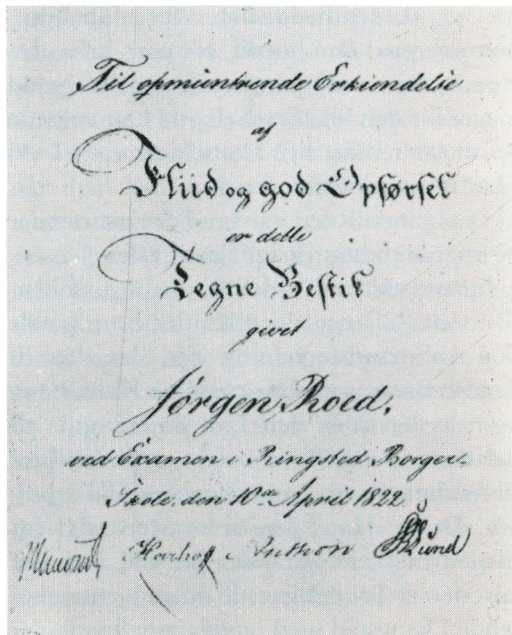 Til opmuntrende Erkiendelse
af
Fliid og god Opførsel
er dette
Tegne Bestik
givet
Jørgen Roed,
ved Examen i Ringsted Borger
Skole, den 10de April 1822
Lund